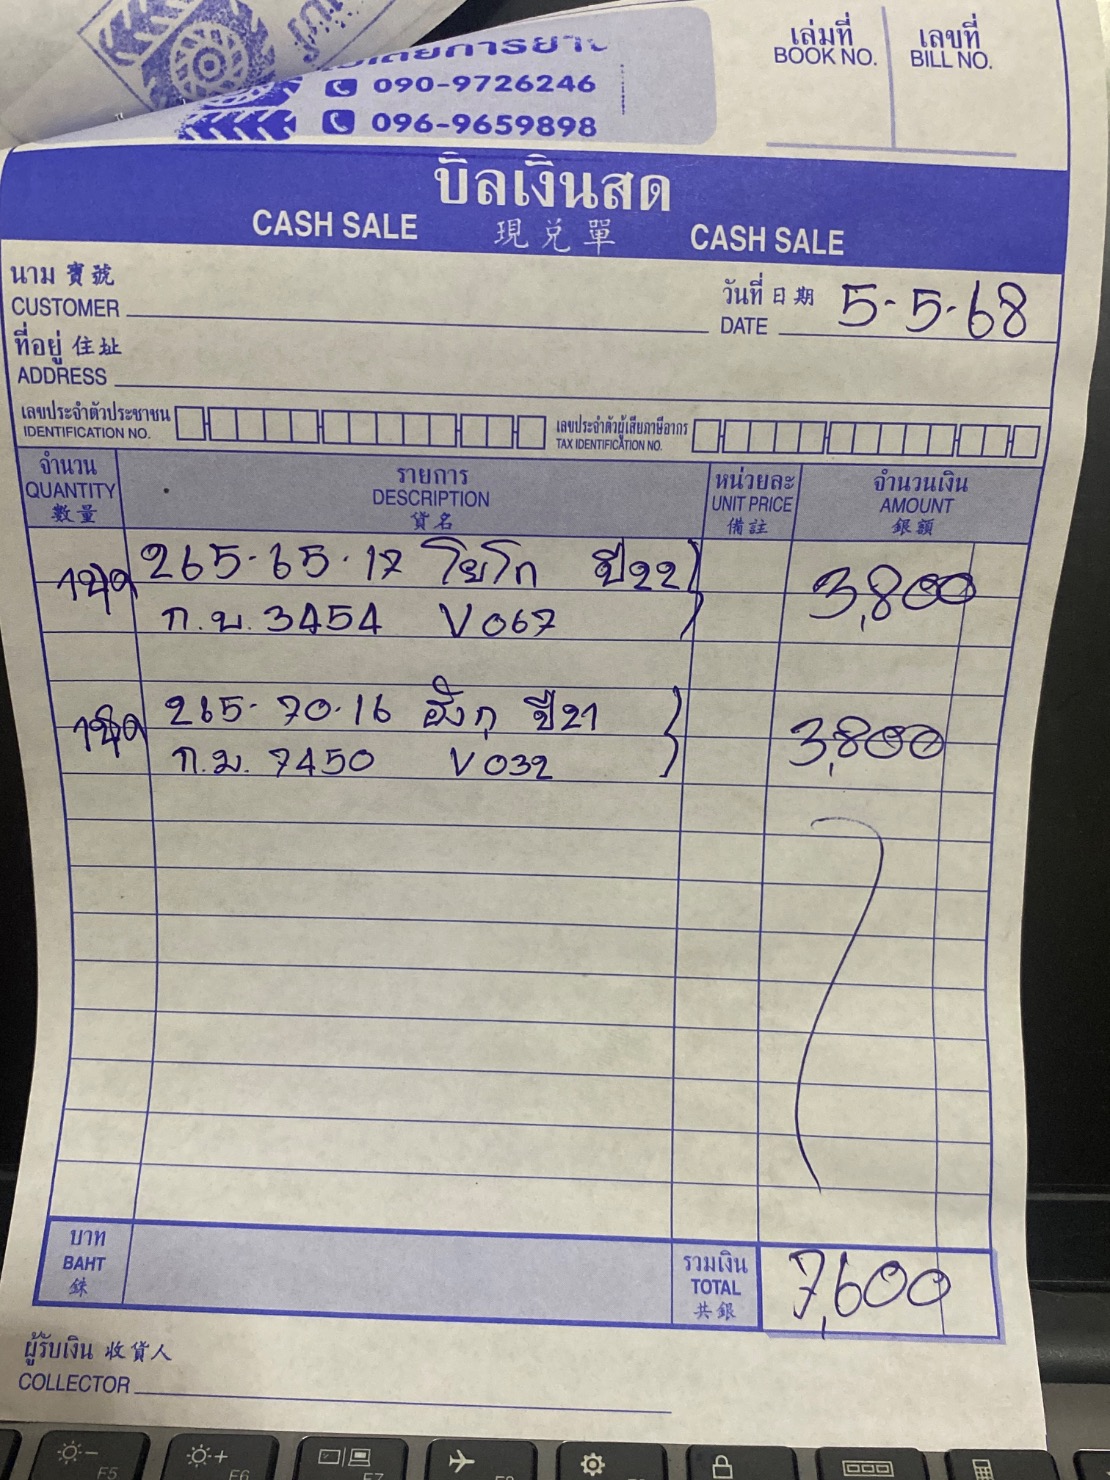 090-9726246
096-9659898
เล่มที่ เลขที่
BOOK NO. BILL NO.
บิลเงินสด
CASH SALE 現兌單 CASH SALE
นาม 寶號
CUSTOMER
วันที่ 日期 5-5-68
DATE
ที่อยู่ 住址
ADDRESS
เลขประจำตัวประชาชน เลขประจำตัวผู้เสียภาษีอากร
IDENTIFICATION NO. TAX IDENTIFICATION NO.
จำนวน รายการ หน่วยละ จำนวนเงิน
QUANTITY DESCRIPTION UNIT PRICE AMOUNT
數量 貨名 備註 銀額
1ชุด 265-65-17 โยโก ปี22 3,800
ก.บ. 3454 V067
1ชุด 265-70-16 ฮังกุ ปี21 3,800
ก.ม. 7450 V032
บาท รวมเงิน 7,600
BAHT TOTAL
銖 共銀
ผู้รับเงิน 收貨人
COLLECTOR
F5 F6 F7